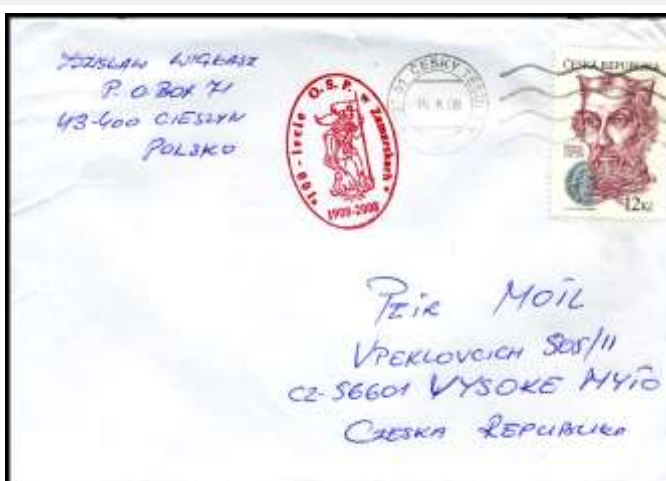 P.O. BOX 71
43-400 CIESZYN
POLSKO
100-lecie O.S.P. w Zamarskach
1909-2008
ČESKÝ TĚŠÍN
ČESKÁ REPUBLIKA
12 Kč
PETR MOTL
505/II
CZ-56601 VYSOKE MYTO
CZESKA REPUBLIKA